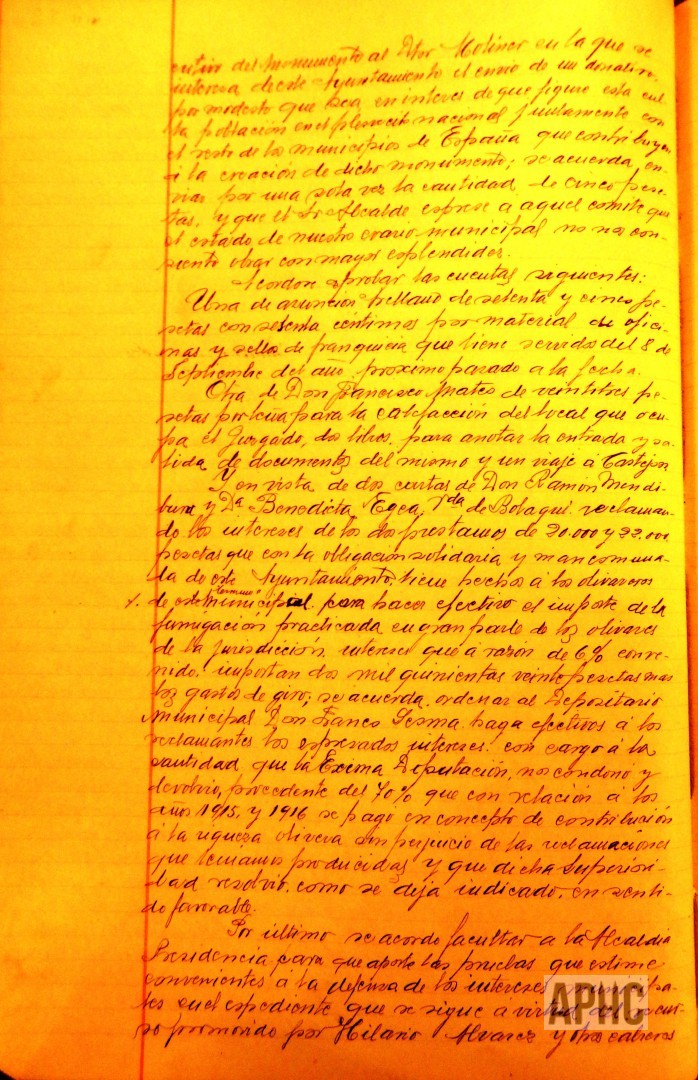 cutivo del monumento al Dtor Moliner en la que se
interesa de este Ayuntamiento el envio de un donativo
por modesto que sea en interes de que figure esta cul
ta poblacion en el plesvicito nacional justamente con
el resto de los municipios de España que contribuyen
á la creacion de dicho monumento; se acuerda, en-
viar por una sola vez la cantidad de cinco pese
tas, y que el Sr Alcalde esprese a aquel comite que
el estado de nuestro erario municipal no nos con-
siente obrar con mayor esplendidez.
Acordose aprobar las cuentas siguientes:
Una de Asuncion Arellano de setenta y cinco pe
setas con sesenta centimos por material de ofici
nas y sellos de franquicia que tiene servidos del 8 de
Septiembre del año proximo pasado a la fecha.
Otra de Don Francisco Mateo de veintitres pe
setas por leña para la calefacción del local que ocu
pa el Juzgado, dos libros para anotar la entrada y sa
lida de documentos del mismo y un viaje á Castejon
Y en vista de dos cartas de Don Ramon Mendi
buru y Dª Benedicta Egea, Vda de Bolaqui reclaman
do los intereses de los dos prestamos de 20.000 y 22.000
pesetas que con la obligacion solidaria y mancomuna
da de este Ayuntamiento, tiene hechos á los olivareros
de este termino municipal para hacer efectivo el importe de la
fumigacion practicada en gran parte de los olivares
de la jurisdicción, intereses que á razón de 6% conve
nido, importan dos mil quinientas veinte pesetas mas
los gastos de giro; se acuerda ordenar al Depositario
Municipal Don Franco Sesma haga efectivos á los
reclamantes los espresados intereses, con cargo á la
cantidad que la Exima Diputación, nos condonó y
devolvio, procedente del 70% que con relación á los
años 1915 y 1916 se pagó en concepto de contribución
á la riqueza olivera sin perjuicio de las reclamaciones
que teniamos producidas y que dicha Superiori-
dad resolvio, como se deja indicado, en senti-
do favorable.
Por último se acordo facultar a la Alcaldia
Presidencia para que aporte las pruebas que estime
convenientes á la defensa de los intereses municipa-
les en el espediente que se sigue a virtud del recur-
so promovido por Hilario Alvarez y otros cabreros
APHC